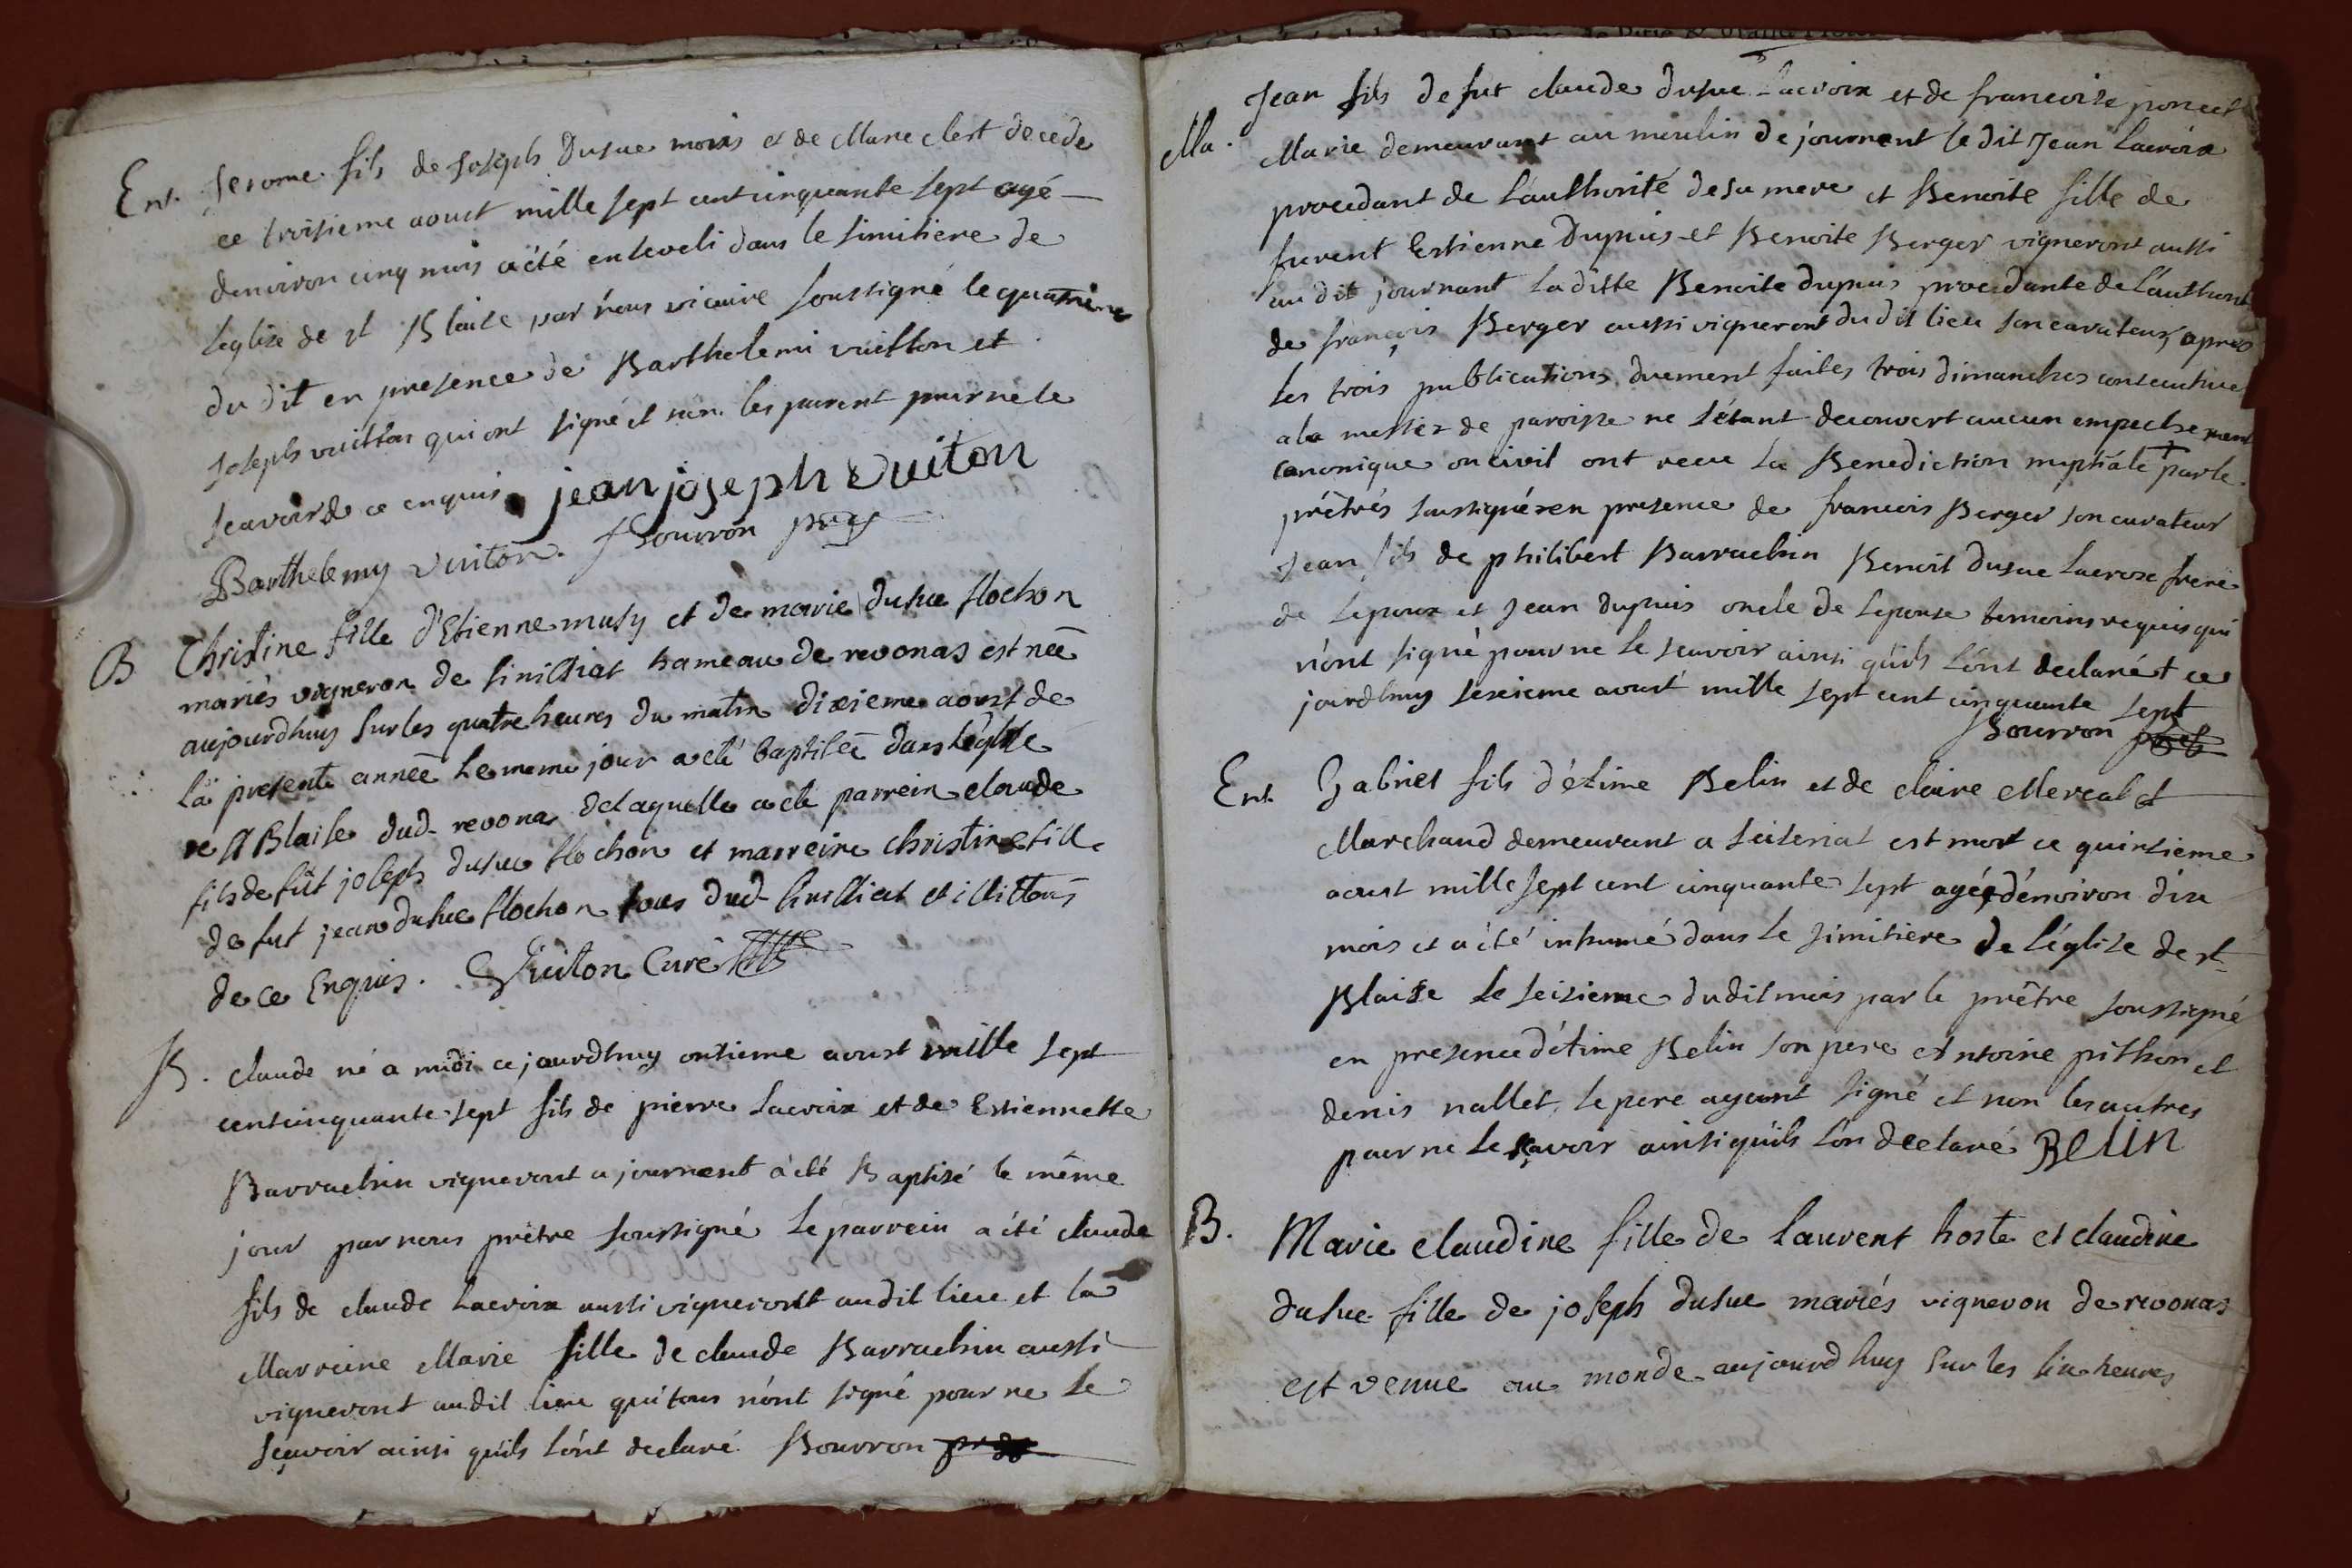 Ent. Jerome fils de Joseph Dusue mois et de Marie clert decede
ce troisieme aoust mille sept cent cinquante sept agé
denviron cinq mois a été enseveli dans le simitiere de
leglise de st Blaise par nous vicaire soussigné le quatrieme
du dit en presence de Barthelemi vuitton et
Joseph vuitton qui ont signé et non les parent pour ne le
scavoir de ce enquis jean joseph vuiton
Barthelemy vuiton. Bourron ptre
B Christine fille d'Etienne musy et de marie dusue flochon
mariés vigneron de sinissiat hameau de revonas est née
aujourdhuy sur les quatre heures du matin dixieme aoust de
la presente année le meme jour a eté baptisée dans léglise
de st Blaise dud. revonas de laquelle a eté parrein claude
fils de fut joseph dusue flochon et marreine christine fille
de fut jean dusue flochon tous dud. et illittérés
de ce Enquis. Vuiton Curé
B. claude né a midi ce jourdhuy onzieme aoust mille sept
cent cinquante sept fils de pierre Lacroix et de Estiennette
Barrachin vigneront a journent a été Baptisé le même
jour par nous prêtre soussigné le parrein a été claude
fils de claude Lacroix aussi vigneront au dit lieu et la
Marreine Marie fille de claude Barrachin aussi
vigneront au dit lieu qui tous n'ont signé pour ne le
sçavoir ainsi qu'ils l'ont declaré Bourron
Ma. Jean fils de fut claude dusue Lacroix et de francoise poncet
Marie demeurant au moulin de journent le dit Jean Lacroix
procedant de l'authorité de sa mere et Benoite fille de
furent Estienne Dupuis et Benoite Berger vigneront aussi
au dit journant la ditte Benoite dupuis procedante de l'authorit
de françois Berger aussi vigneront du dit lieu son curateur, apres
les trois publications duement faites trois dimanches consecutives
a la messe de paroisse ne s'étant decouvert aucun empechement
canonique ou civil ont recue la Benediction nuptiale par le
prêtrés soussigné en presence de francois Berger son curateur
Jean fils de philibert Barrachin Benoit dusue Lacroix frere
de lepoux et Jean dupuis oncle de lepouse temoins requis qui
n'ont signé pour ne le scavoir ainsi qu'ils l'ont declaré ce
jourdhuy seizieme aoust mille sept cent cinquante sept
Bourron ptre
Ent. Gabriel fils d'étime Belin et de claire Mercal et
Marchand demeurant a seizeriat est mort ce quinzieme
aoust mille sept cent cinquante sept agé d'énviron dix
mois et a été inhumé dans le simitière de l'église de st
Blaise le seizieme du dit mois par le prêtre soussigné
en presence d'étime Belin son pere Antoine pithon et
denis nallet, le pere ayant signé et non les autres
pour ne le sçavoir ainsi qu'ils l'on declaré BElin
B. Marie claudine fille de laurent hoste et claudine
dusue fille de joseph dusue mariés vigneron de revonas
est venue au monde aujourdhuy sur les six heures